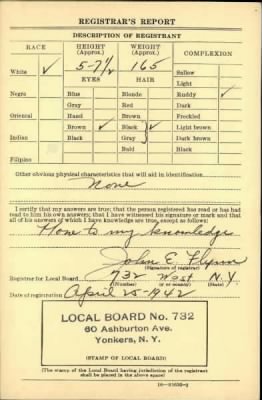 REGISTRAR'S REPORT
DESCRIPTION OF REGISTRANT
RACE HEIGHT (Approx.) WEIGHT (Approx.) COMPLEXION
5-7½ 165
White ✓ Sallow
EYES HAIR Light
Negro Blue Blonde Ruddy ✓
Gray Red Dark
Oriental Hazel Brown Freckled
Brown ✓ Black ✓ Light brown
Indian Black Gray Dark brown
Bald Black
Filipino
Other obvious physical characteristics that will aid in identification
None
I certify that my answers are true; that the person registered has read or has had
read to him his own answers; that I have witnessed his signature or mark and that
all of his answers of which I have knowledge are true, except as follows:
None to my knowledge
John E. Flynn
(Signature of registrar)
Registrar for Local Board 732 West N.Y.
(Number) (City or county) (State)
Date of registration April 25-1942
LOCAL BOARD No. 732
60 Ashburton Ave.
Yonkers, N. Y.
(STAMP OF LOCAL BOARD)
(The stamp of the Local Board having jurisdiction of the registrant
shall be placed in the above space)